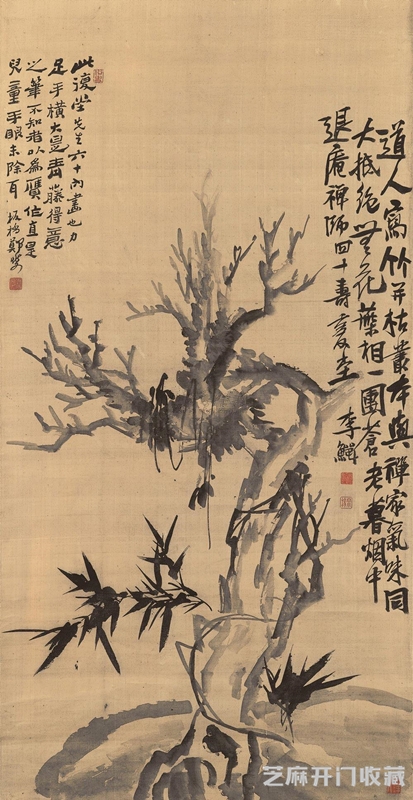 道人寫竹并枯叢却與禪家氣味同
大抵絶無花葉相一團蒼老暮烟中
退庵禪師四十壽復堂
李鱓
此復堂先生六十內畫也力
足手橫大是青藤得意
之筆不知者以為贋作直是
兒童手眼未除耳板橋鄭燮
芝麻开门收藏